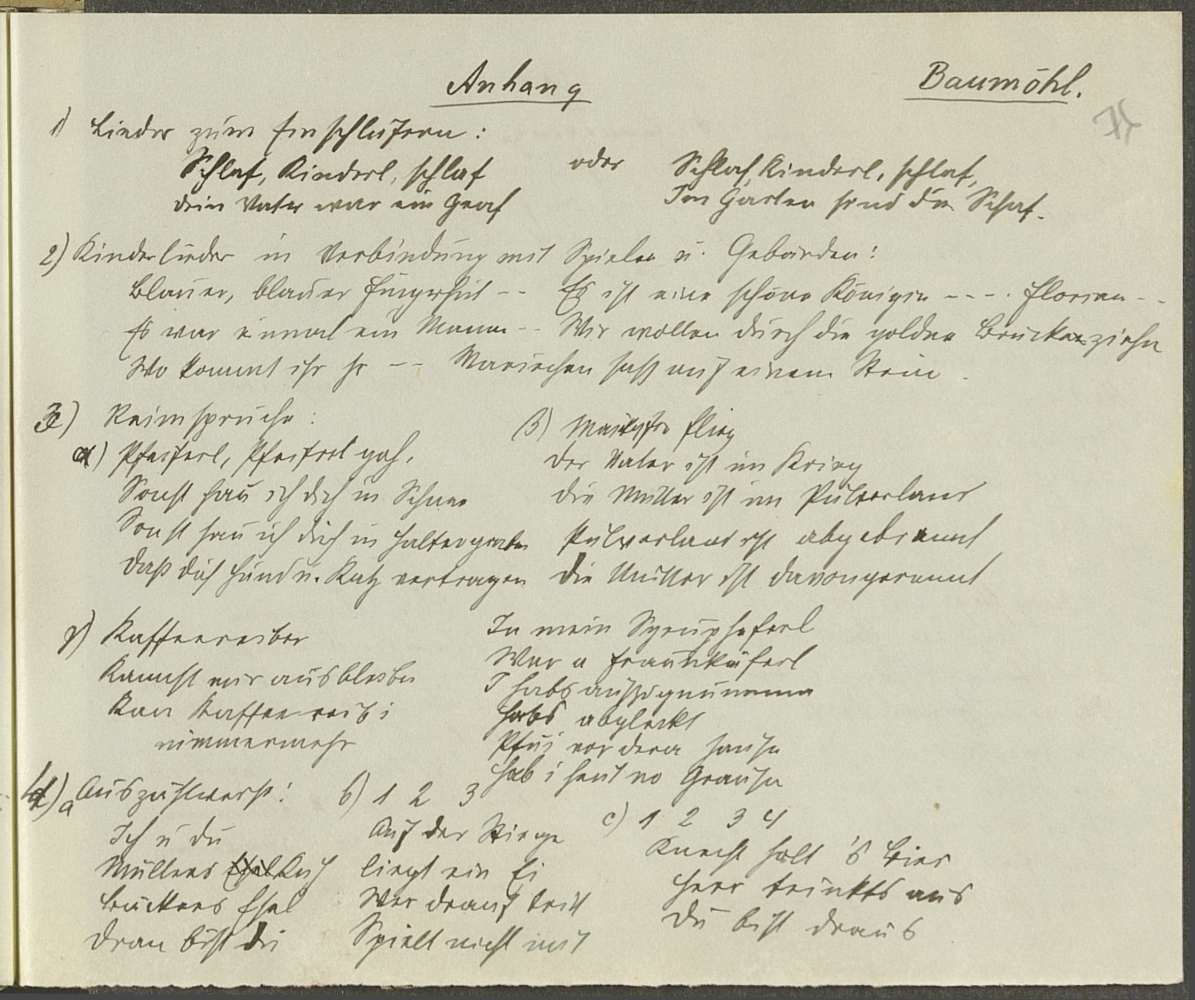 Anhang
Baumöhl.
1) Lieder zum Einschläfern:
Schlaf, Kinderl, schlaf
dein Vater war ein Graf
oder
Schlaf Kinderl, schlaf,
Im Garten sind die Schaf.
2) Kinderlieder in Verbindung mit Spielen u. Gebärden:
Blauer, blauer Fingerhut -- Es ist eine schöne Königin ---. Florian --
Es war einmal ein Mann -- Wir wollen durch die goldne Brücke ziehn
Wo kommt ihr her -- Mariechen saß auf einem Stein.
3) Reimsprüche:
α) Pfeiferl, Pfeiferl geh,
Sonst hau ich dich in Schnee
Sonst hau ich dich in Haltergraben
Daß dich Hund u. Katz vertragen
β) Maikäfer flieg
der Vater ist im Krieg
die Mutter ist im Pulverland
Pulverland ist abgebrannt
die Mutter ist davongerannt
γ) Kaffeereiber
Kannst mir ausbleiben
Kan Kaffee reib i
nimmermehr
In mein Syruphäferl
War a Frauenkäferl
I habs aussignumma
habs abgleckt
Pfui vor dera
Hab i heut no Grause
4) a Auszählverse:
Ich u du
Müllers Esel Kuh
Bäckers Esel
Dran bist du
b) 1 2 3
Auf der Stiege
liegt ein Ei
Wer drauf tritt
Spielt nicht mit
c) 1 2 3 4
Knecht holt 's Bier
Herr trinkts aus
Du bist draus